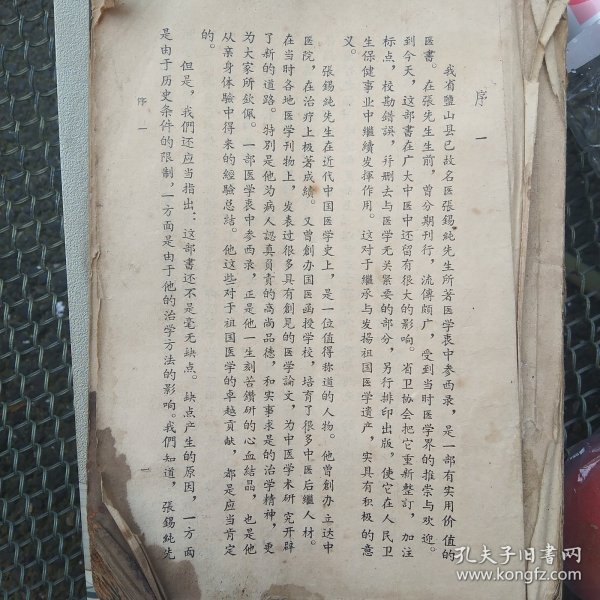 序一
我省鹽山县已故名医張錫純先生所著医学衷中参西录，是一部有实用价值的
医書。在張先生生前，曾分期刊行，流傳頗广，受到当时医学界的推崇与欢迎。
到今天，这部書在广大中医中还留有很大的影响。省卫协会把它重新整訂，加注
标点，校勘錯誤，幷删去与医学无关紧要的部分，另行排印出版，使它在人民卫
生保健事业中繼續发揮作用。这对于繼承与发揚祖国医学遗产，实具有积极的意
义。
張錫純先生在近代中国医学史上，是一位值得称道的人物。他曾創办立达中
医院，在治疗上极著成績。又曾創办国医函授学校，培育了很多中医后繼人材。
在当时各地医学刊物上，发表过很多具有創見的医学論文，为中医学术研究开辟
了新的道路。特別是他为病人認真負責的高尚品德，和实事求是的治学精神，更
为大家所欽佩。一部医学衷中参西录，正是他一生刻苦鑽研的心血結晶，也是他
从亲身体驗中得来的經驗总結。他这些对于祖国医学的卓越贡献，都是应当肯定
的。
但是，我們还应当指出：这部書还不是毫无缺点。缺点产生的原因，一方面
是由于历史条件的限制，一方面是由于他的治学方法的影响。我們知道，張錫純先
序一
一
孔夫子旧書网
www.kongfz.com